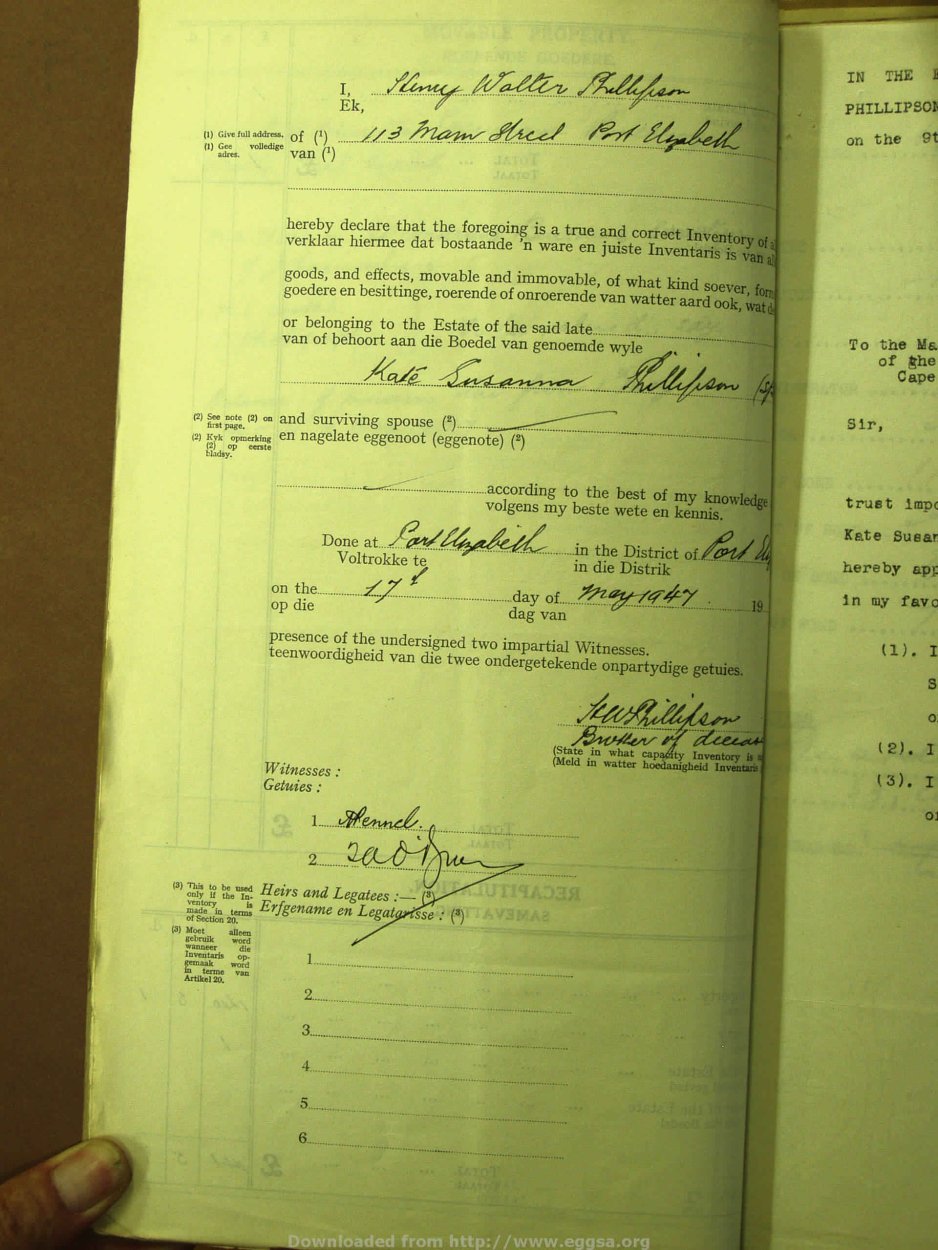 I, Henry Walter Phillipson
Ek,
(1) Give full address. of (1) 113 Main Street Port Elizabeth
(1) Gee volledige adres. van (1)
hereby declare that the foregoing is a true and correct Inventory of a
verklaar hiermee dat bostaande 'n ware en juiste Inventaris is van al
goods, and effects, movable and immovable, of what kind soever, form
goedere en besittinge, roerende of onroerende van watter aard ook, wat d
or belonging to the Estate of the said late
van of behoort aan die Boedel van genoemde wyle
Kate Susanna Phillipson (Sp
(2) See note (2) on first page. and surviving spouse (2)
(2) Kyk opmerking (2) op eerste bladsy. en nagelate eggenoot (eggenote) (2)
according to the best of my knowledge
volgens my beste wete en kennis.
Done at Port Elizabeth in the District of Port El
Voltrokke te in die Distrik
on the 17th day of May 1947 19
op die dag van
presence of the undersigned two impartial Witnesses.
teenwoordigheid van die twee ondergetekende onpartydige getuies.
HWPhillipson
Brother of deceas
(State in what capacity Inventory is
(Meld in watter hoedanigheid Inventaris
Witnesses :
Getuies :
1
2
(3) This to be used only if the Inventory is made in terms of Section 20.
Heirs and Legatees :— (3)
Erfgename en Legatarisse : (3)
(3) Moet alleen gebruik word wanneer die Inventaris opgemaak word in terme van Artikel 20.
1
2
3
4
5
6
IN THE E
PHILLIPSON
on the 9t
To the Ma
of the
Cape
Sir,
trust impo
Kate Susan
hereby app
in my favo
(1). I
S
o
(2). I
(3). I
o
Downloaded from http://www.eggsa.org